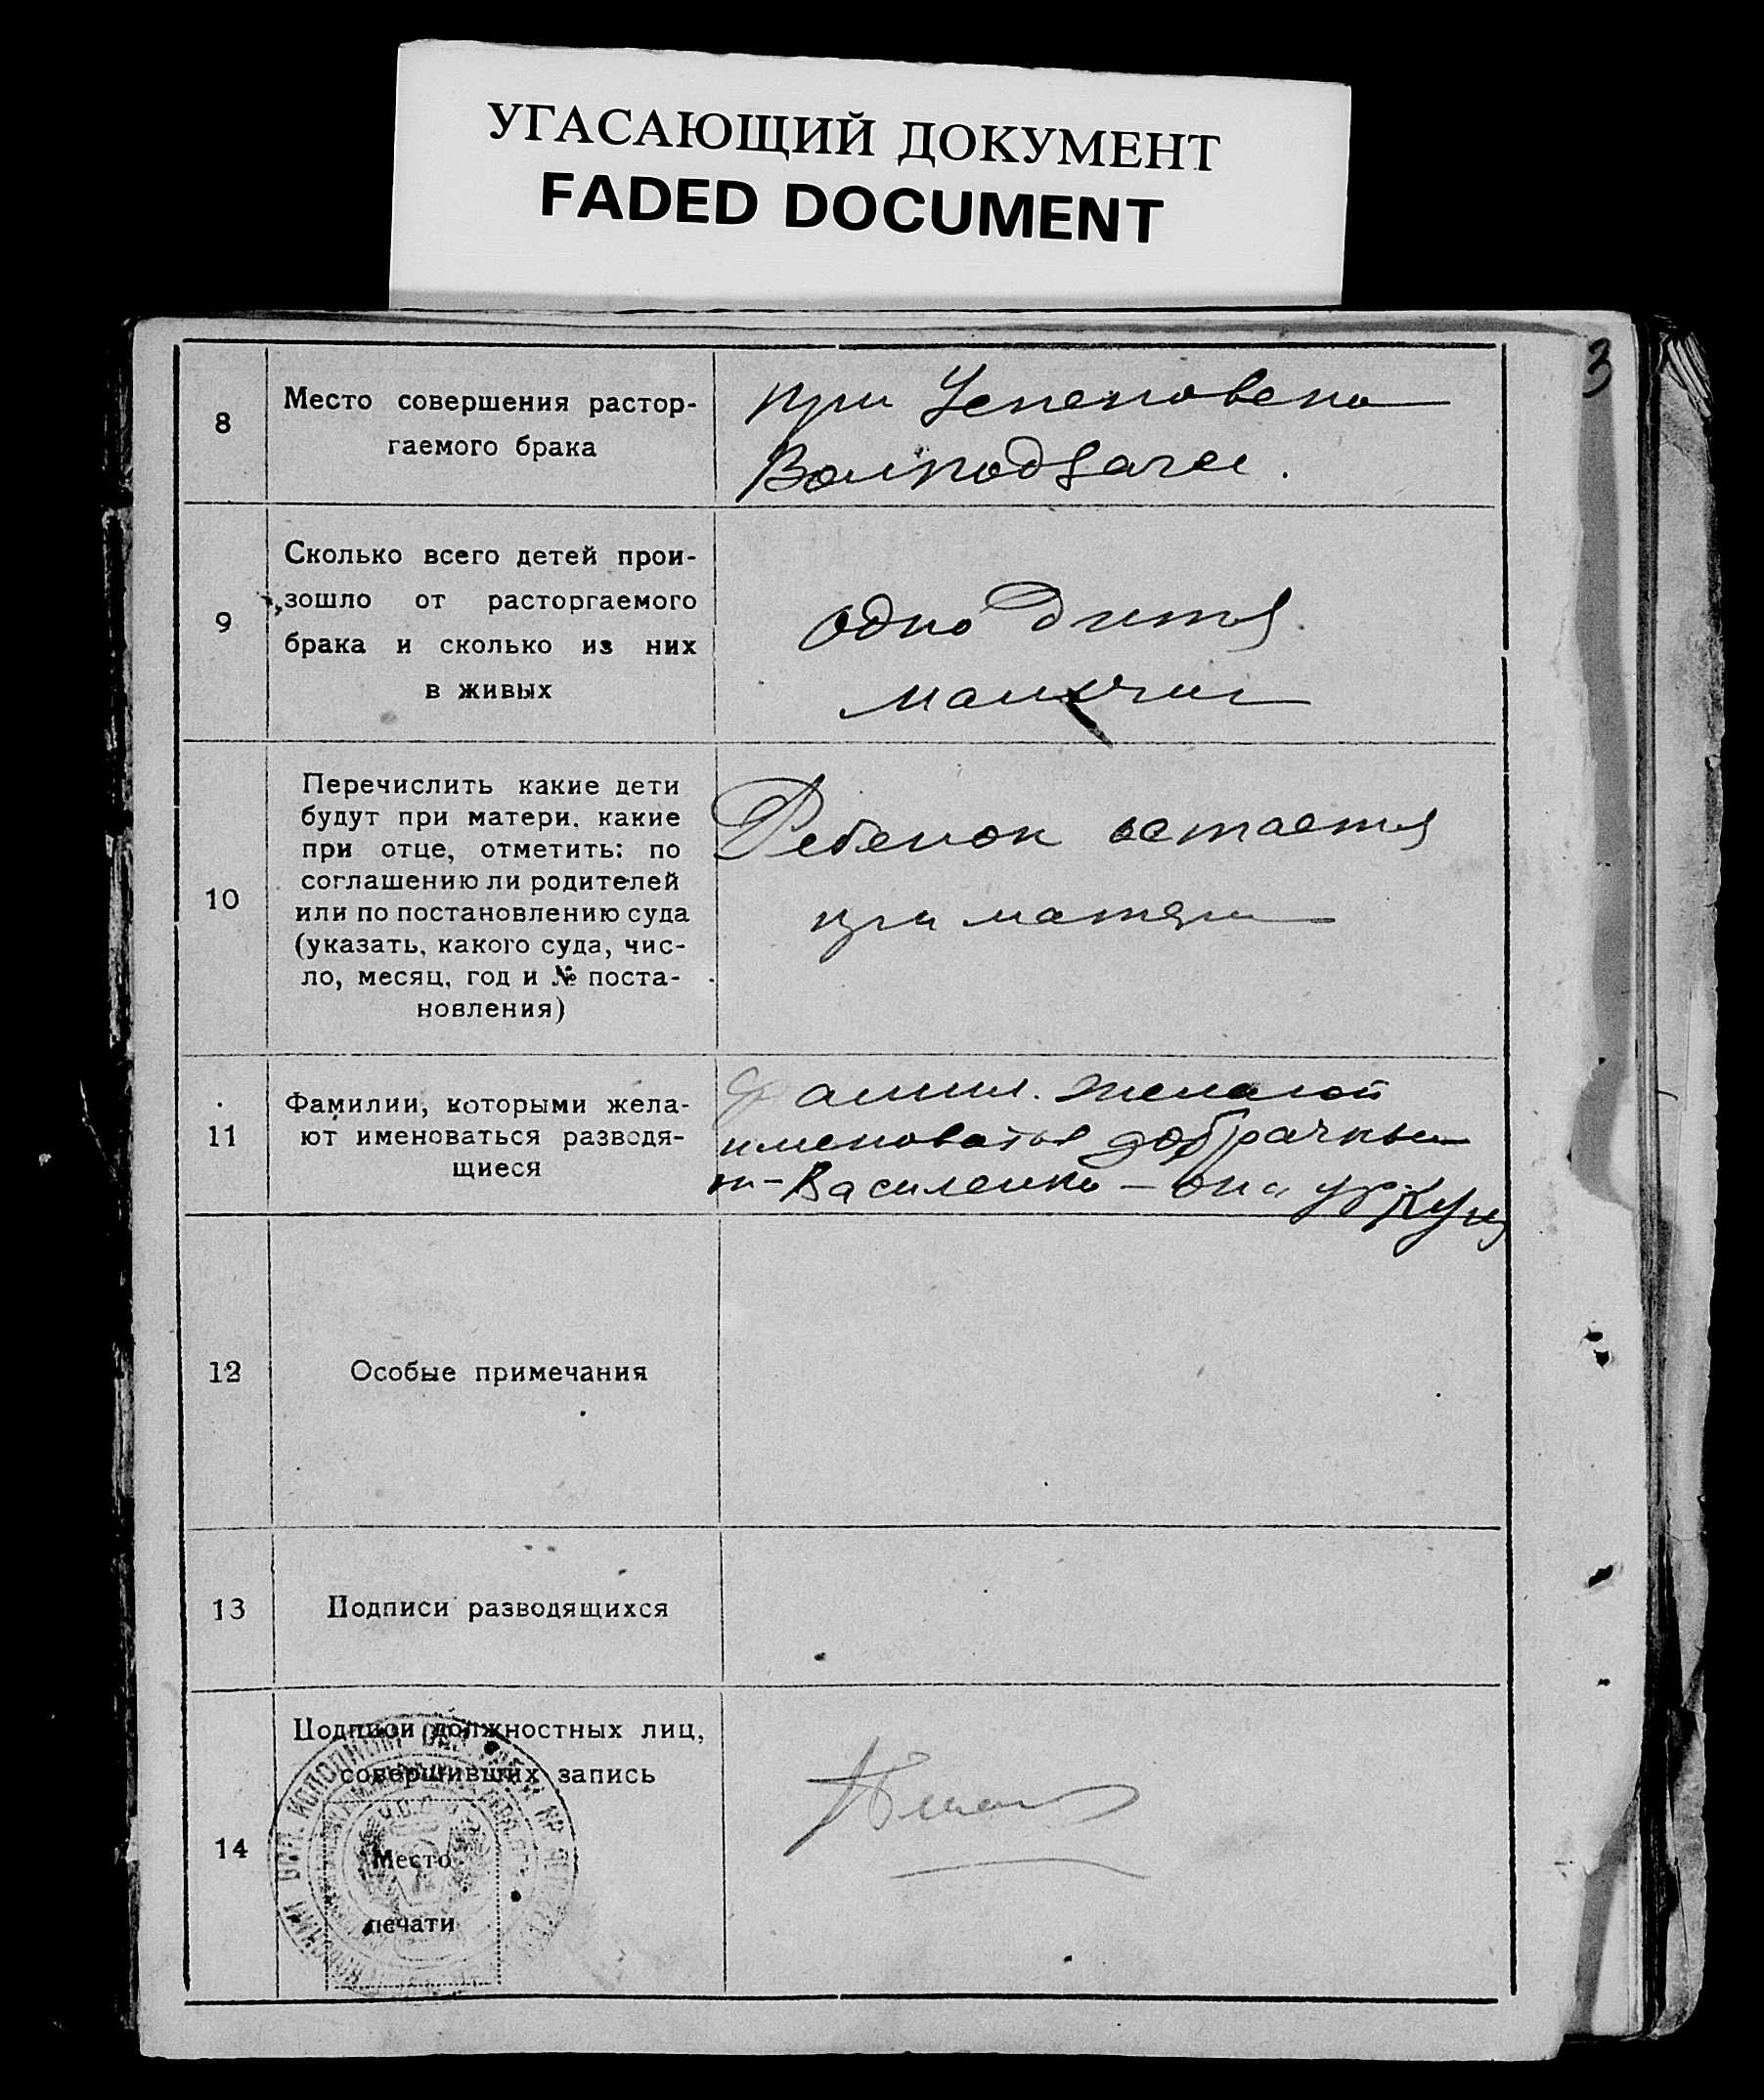 УГАСАЮЩИЙ ДОКУМЕНТ
FADED DOCUMENT
3
8
Место совершения растор-
гаемого брака
при
9
Сколько всего детей прои-
зошло от расторгаемого
брака и сколько из них
в живых
одно дитя
мальчик
10
Перечислить какие дети
будут при матери, какие
при отце, отметить: по
соглашению ли родителей
или по постановлению суда
(указать, какого суда, чис-
ло, месяц, год и № поста-
новления)
Ребенок остается
при матери
11
Фамилии, которыми жела-
ют именоваться разводя-
щиеся
Фамил. желают
именоваться добрачным
Василенко – она
12
Особые примечания
13
Подписи разводящихся
14
Подписи должностных лиц,
совершивших запись
Место
печати